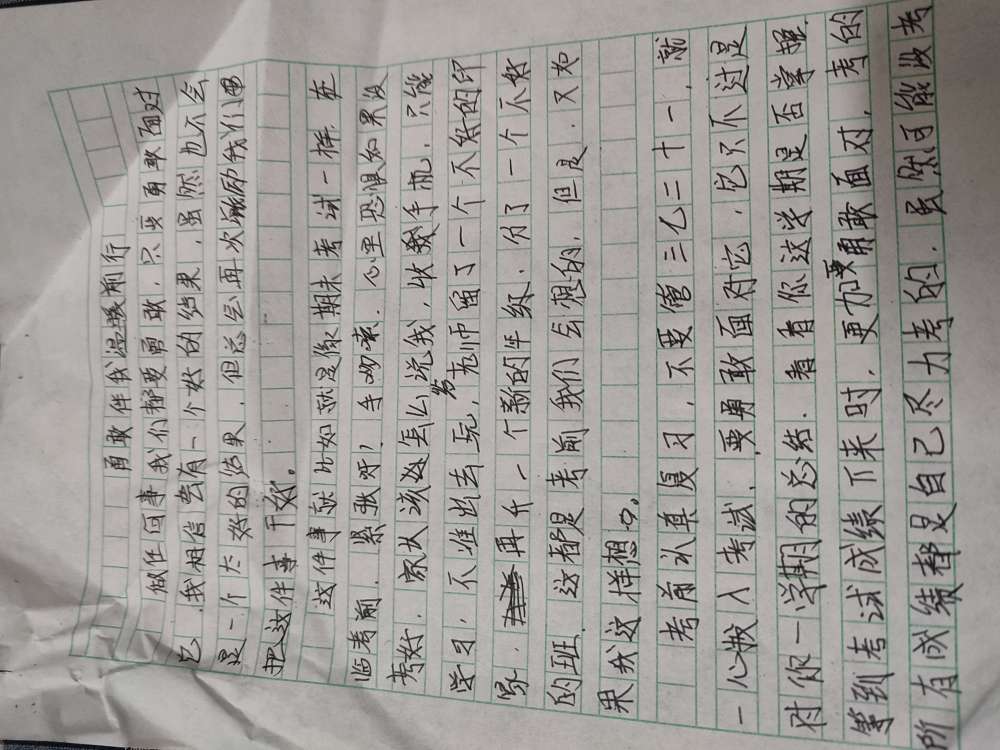 勇敢伴我前行
做任何事我们都要勇敢，只要勇敢面对
它，我相信会有一个好的结果，虽然也不会
是一个太好的结果，但总会再次激励我们
把这件事干好。
这件事就比如就是像期末考试一样，在
临考前，紧张呀，手呀，心里恐惧如果没
考好，家长该怎么说我，收手机，只能
学习，不准出去玩，老师留了一个不好的印
象，再升一个新的年级，分了一个不好
的班，这都是考前我们会想的，但是，又如
果我这样想呢。
考前认真复习，不要管三乙二十一，就
一心投入考试，要勇敢面对它，它只不过是
对你一学期的总结，看看你这学期是否掌握，
等到考试成绩下来时，更加要勇敢面对，考的
所有成绩都是自己尽力考的，虽然可能没考